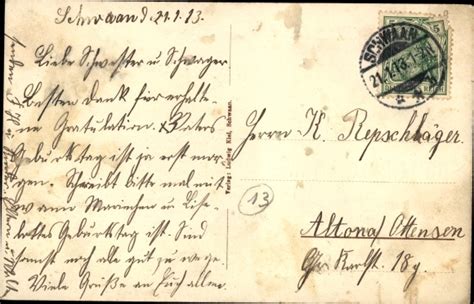 Schwaan d. 21.1.13.
Liebe Schwester u Schwager
Besten Dank für erhalte-
ne Gratulation. Vaters
Geburtstag ist ja erst mor-
gen. Schreibt bitte mal mit
wann Mariechen u Lise-
lottes Geburtstag ist. Sind
sonst noch alle gut zu wege.
Viele Grüße an Euch allen
Verlag: Ludwig Kiel, Schwaan.
SCHWAAN
21.1.13.
5
Herrn K. Repschläger.
13
Altona/Ottensen
Gr. Karlst. 18g.